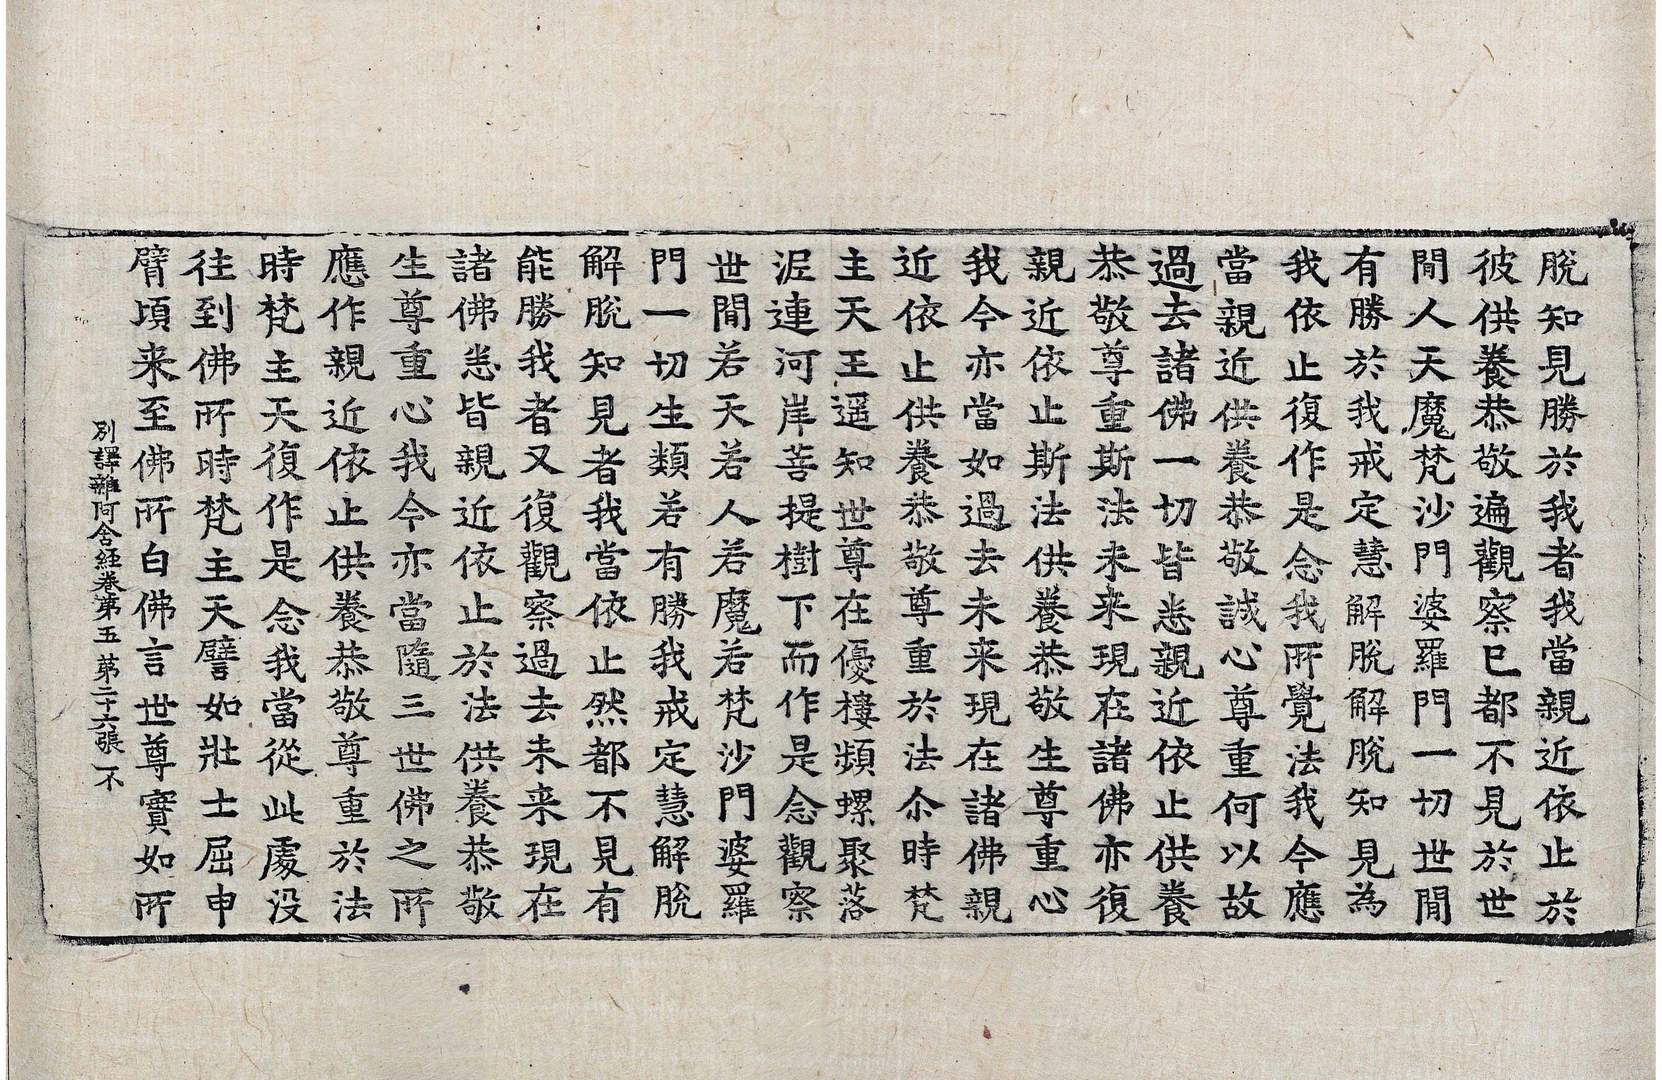 脫知見勝於我者我當親近依止於
彼供養恭敬遍觀察已都不見於世
閒人天魔梵沙門婆羅門一切世閒
有勝於我戒定慧解脫解脫知見為
我依止復作是念我所覺法我今應
當親近供養恭敬誠心尊重何以故
過去諸佛一切皆悉親近依止供養
恭敬尊重斯法未来現在諸佛亦復
親近依止斯法供養恭敬生尊重心
我今亦當如過去未来現在諸佛親
近依止供養恭敬尊重於法尒時梵
主天王遥知世尊在優樓頻螺聚落
泥連河岸菩提樹下而作是念觀察
世間若天若人若魔若梵沙門婆羅
門一切生類若有勝我戒定慧解脫
解脫知見者我當依止然都不見有
能勝我者又復觀察過去未来現在
諸佛悉皆親近依止於法供養恭敬
生尊重心我今亦當隨三世佛之所
應作親近依止供養恭敬尊重於法
時梵主天復作是念我當從此處没
往到佛所時梵主天譬如壯士屈申
臂頃来至佛所白佛言世尊實如所
別譯雜阿含經卷第五 苐二十六張 不